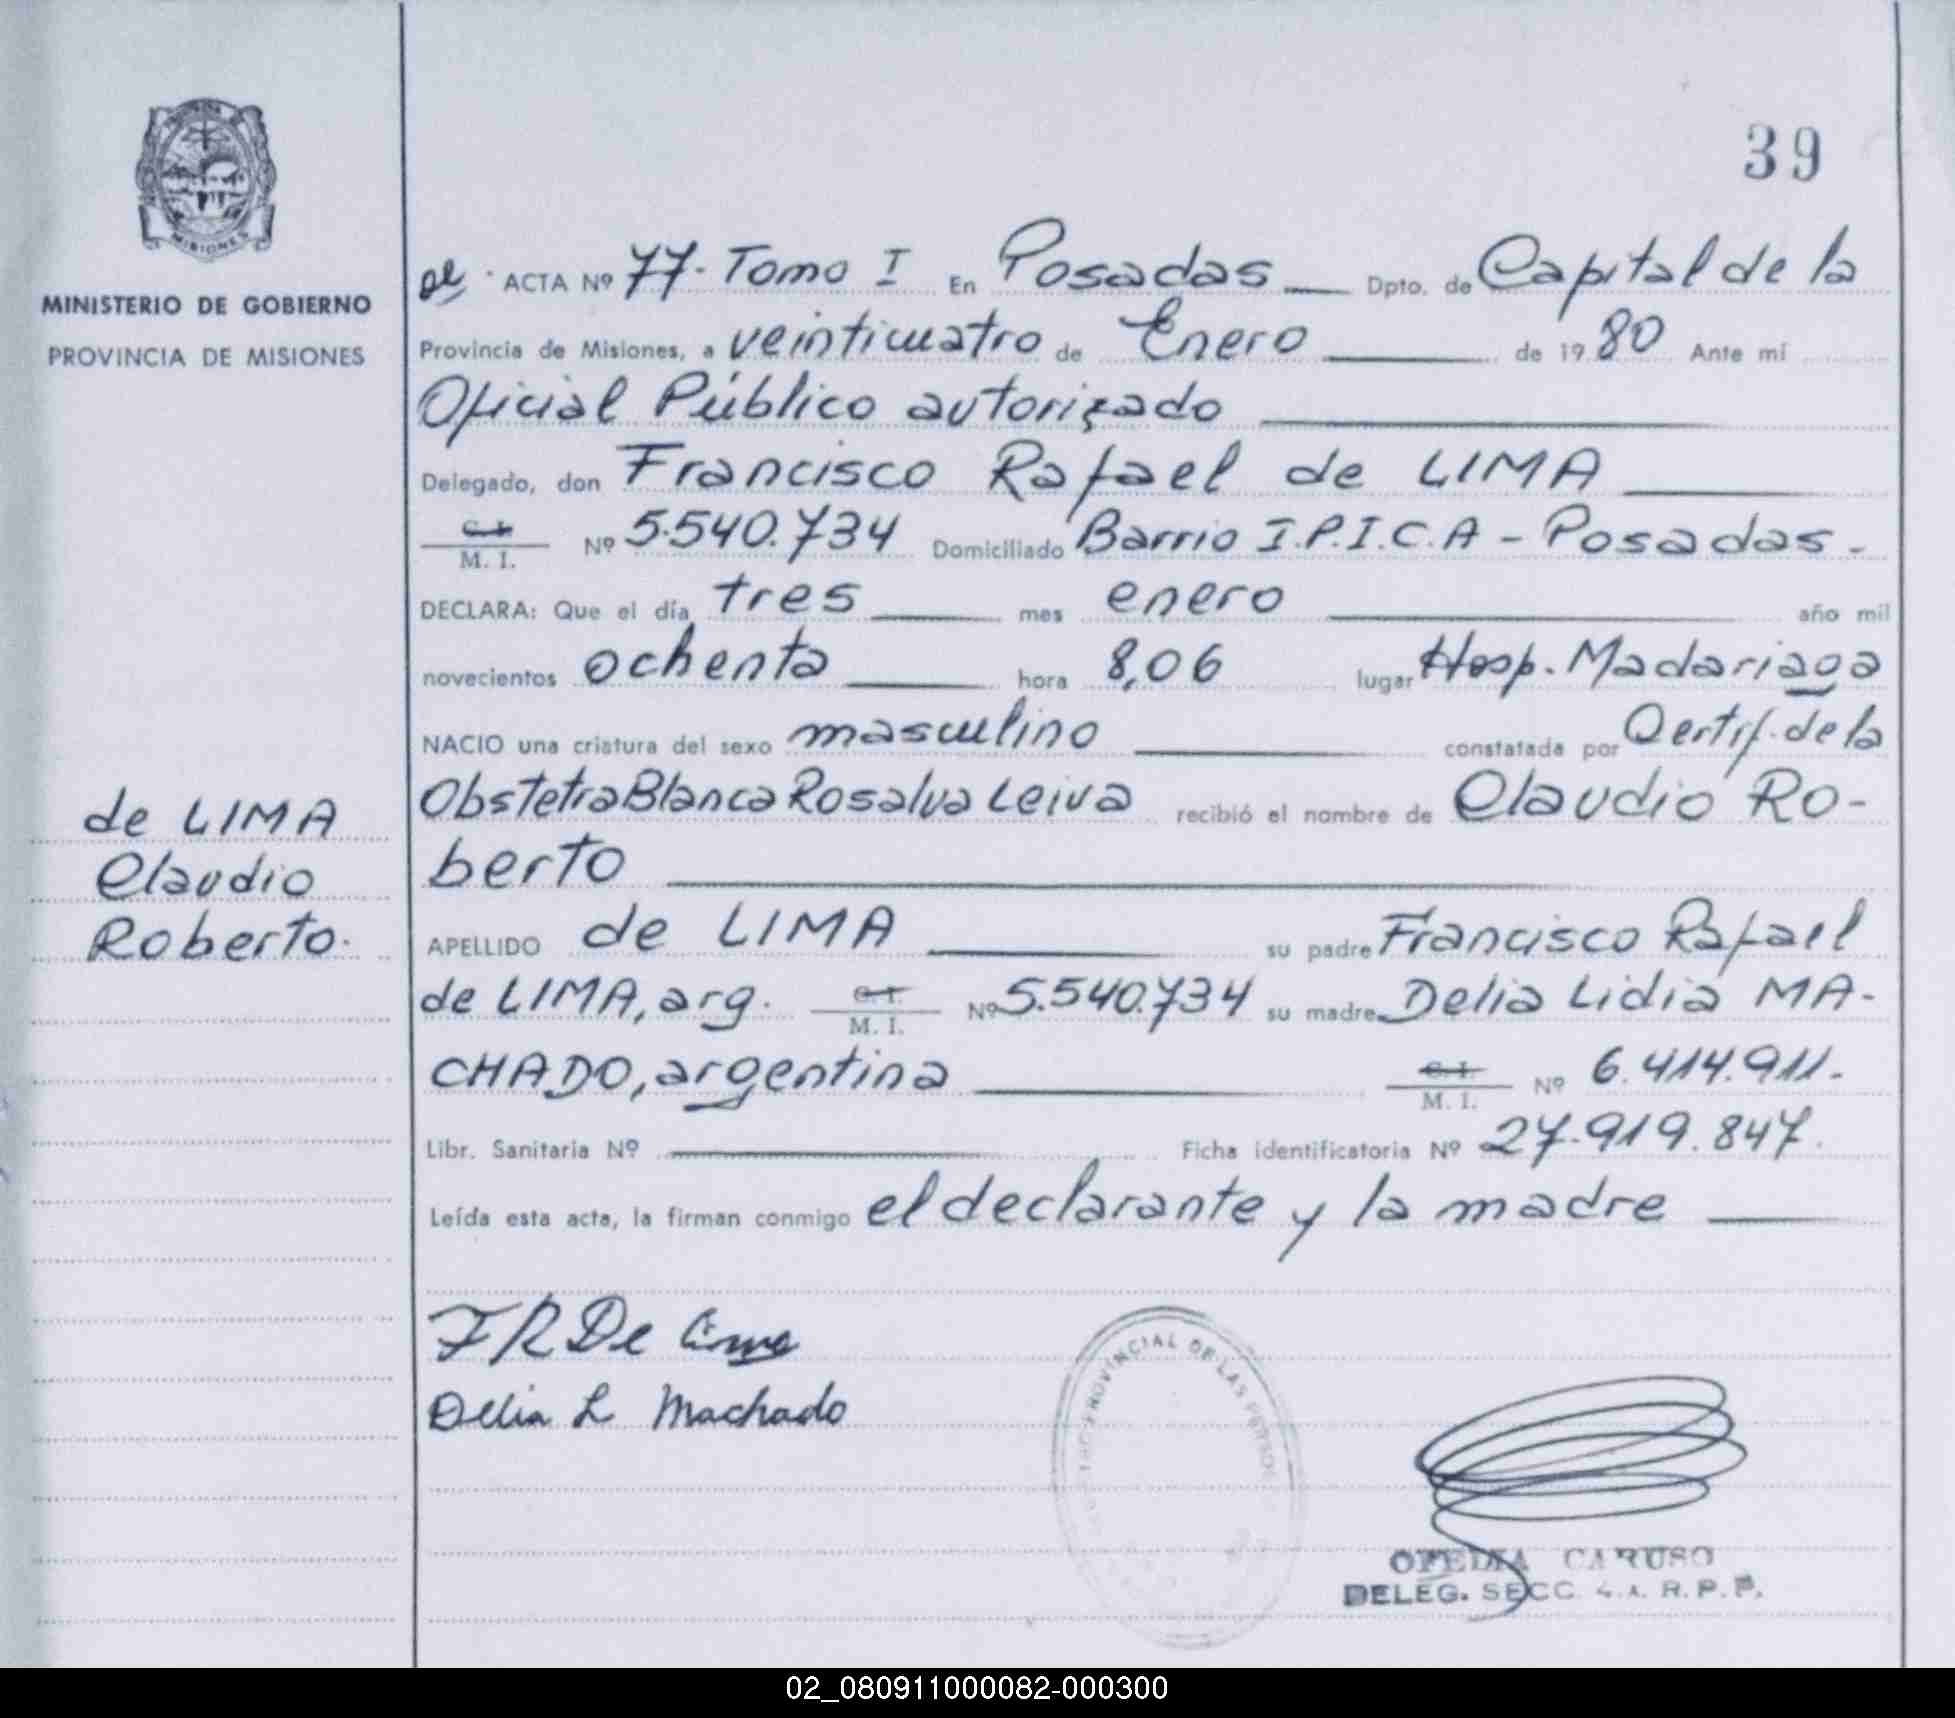 39
MINISTERIO DE GOBIERNO
PROVINCIA DE MISIONES
ACTA Nº 77. Tomo I En Posadas Dpto. de Capital de la
Provincia de Misiones, a veinticuatro de Enero de 1980 Ante mí
Oficial Público autorizado
Delegado, don Francisco Rafael de LIMA
C. I.
M. I. Nº 5.540.734 Domiciliado Barrio I.P.I.C.A - Posadas.
DECLARA: Que el día tres mes enero año mil
novecientos ochenta hora 8,06 lugar Hosp. Madariaga
NACIO una criatura del sexo masculino constatada por Certif. de la
Obstetra Blanca Rosalva Leiva recibió el nombre de Claudio Ro-
berto
APELLIDO de LIMA su padre Francisco Rafael
de LIMA, arg. C. I.
M. I. Nº 5.540.734 su madre Delia Lidia MA-
CHADO, argentina C. I.
M. I. Nº 6.414.911.
Libr. Sanitaria Nº Ficha identificatoria Nº 27.919.847.
Leída esta acta, la firman conmigo el declarante y la madre
de LIMA
Claudio
Roberto.
F R De Lima
Delia L Machado
PROVINCIAL DE LAS PERSO
OFELIA CARUSO
DELEG. SECC. 4.a. R. P. P.
MISIONES
02_080911000082-000300